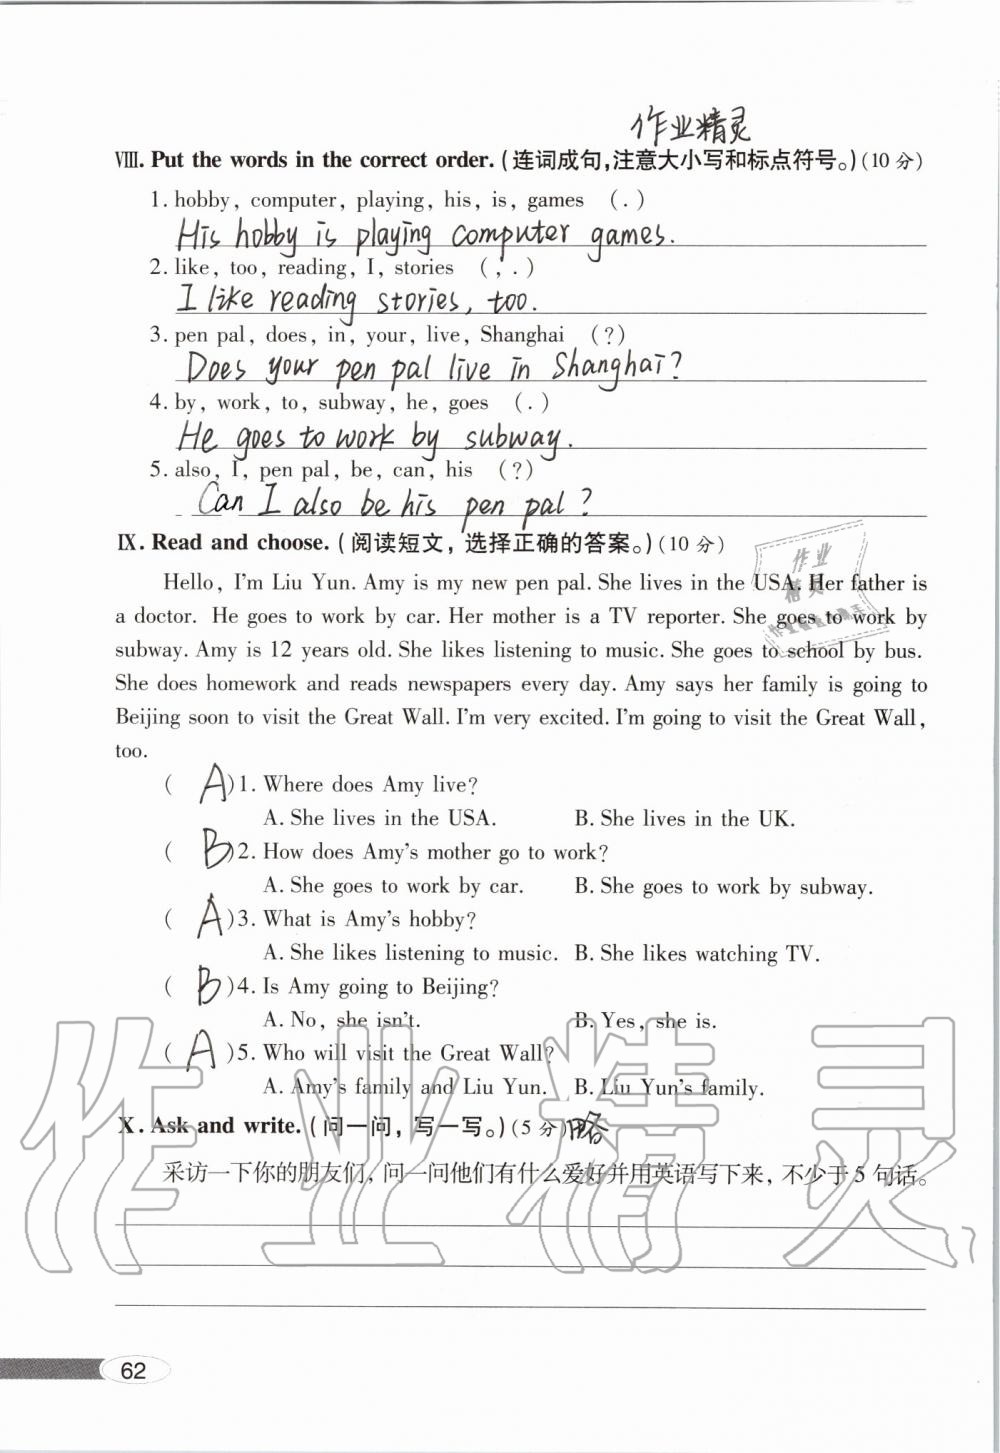 作业精灵
Ⅷ. Put the words in the correct order. (连词成句,注意大小写和标点符号。)(10 分)
1. hobby, computer, playing, his, is, games (.)
His hobby is playing computer games.
2. like, too, reading, I, stories (, .)
I like reading stories, too.
3. pen pal, does, in, your, live, Shanghai (?)
Does your pen pal live in Shanghai?
4. by, work, to, subway, he, goes (.)
He goes to work by subway.
5. also, I, pen pal, be, can, his (?)
Can I also be his pen pal?
Ⅸ. Read and choose. (阅读短文,选择正确的答案。)(10 分)
Hello, I'm Liu Yun. Amy is my new pen pal. She lives in the USA. Her father is
a doctor. He goes to work by car. Her mother is a TV reporter. She goes to work by
subway. Amy is 12 years old. She likes listening to music. She goes to school by bus.
She does homework and reads newspapers every day. Amy says her family is going to
Beijing soon to visit the Great Wall. I'm very excited. I'm going to visit the Great Wall,
too.
( A )1. Where does Amy live?
A. She lives in the USA. B. She lives in the UK.
( B )2. How does Amy's mother go to work?
A. She goes to work by car. B. She goes to work by subway.
( A )3. What is Amy's hobby?
A. She likes listening to music. B. She likes watching TV.
( B )4. Is Amy going to Beijing?
A. No, she isn't. B. Yes, she is.
( A )5. Who will visit the Great Wall?
A. Amy's family and Liu Yun. B. Liu Yun's family.
Ⅹ. Ask and write. (问一问,写一写。)(5 分)略
采访一下你的朋友们,问一问他们有什么爱好并用英语写下来,不少于 5 句话。
作业精灵
62